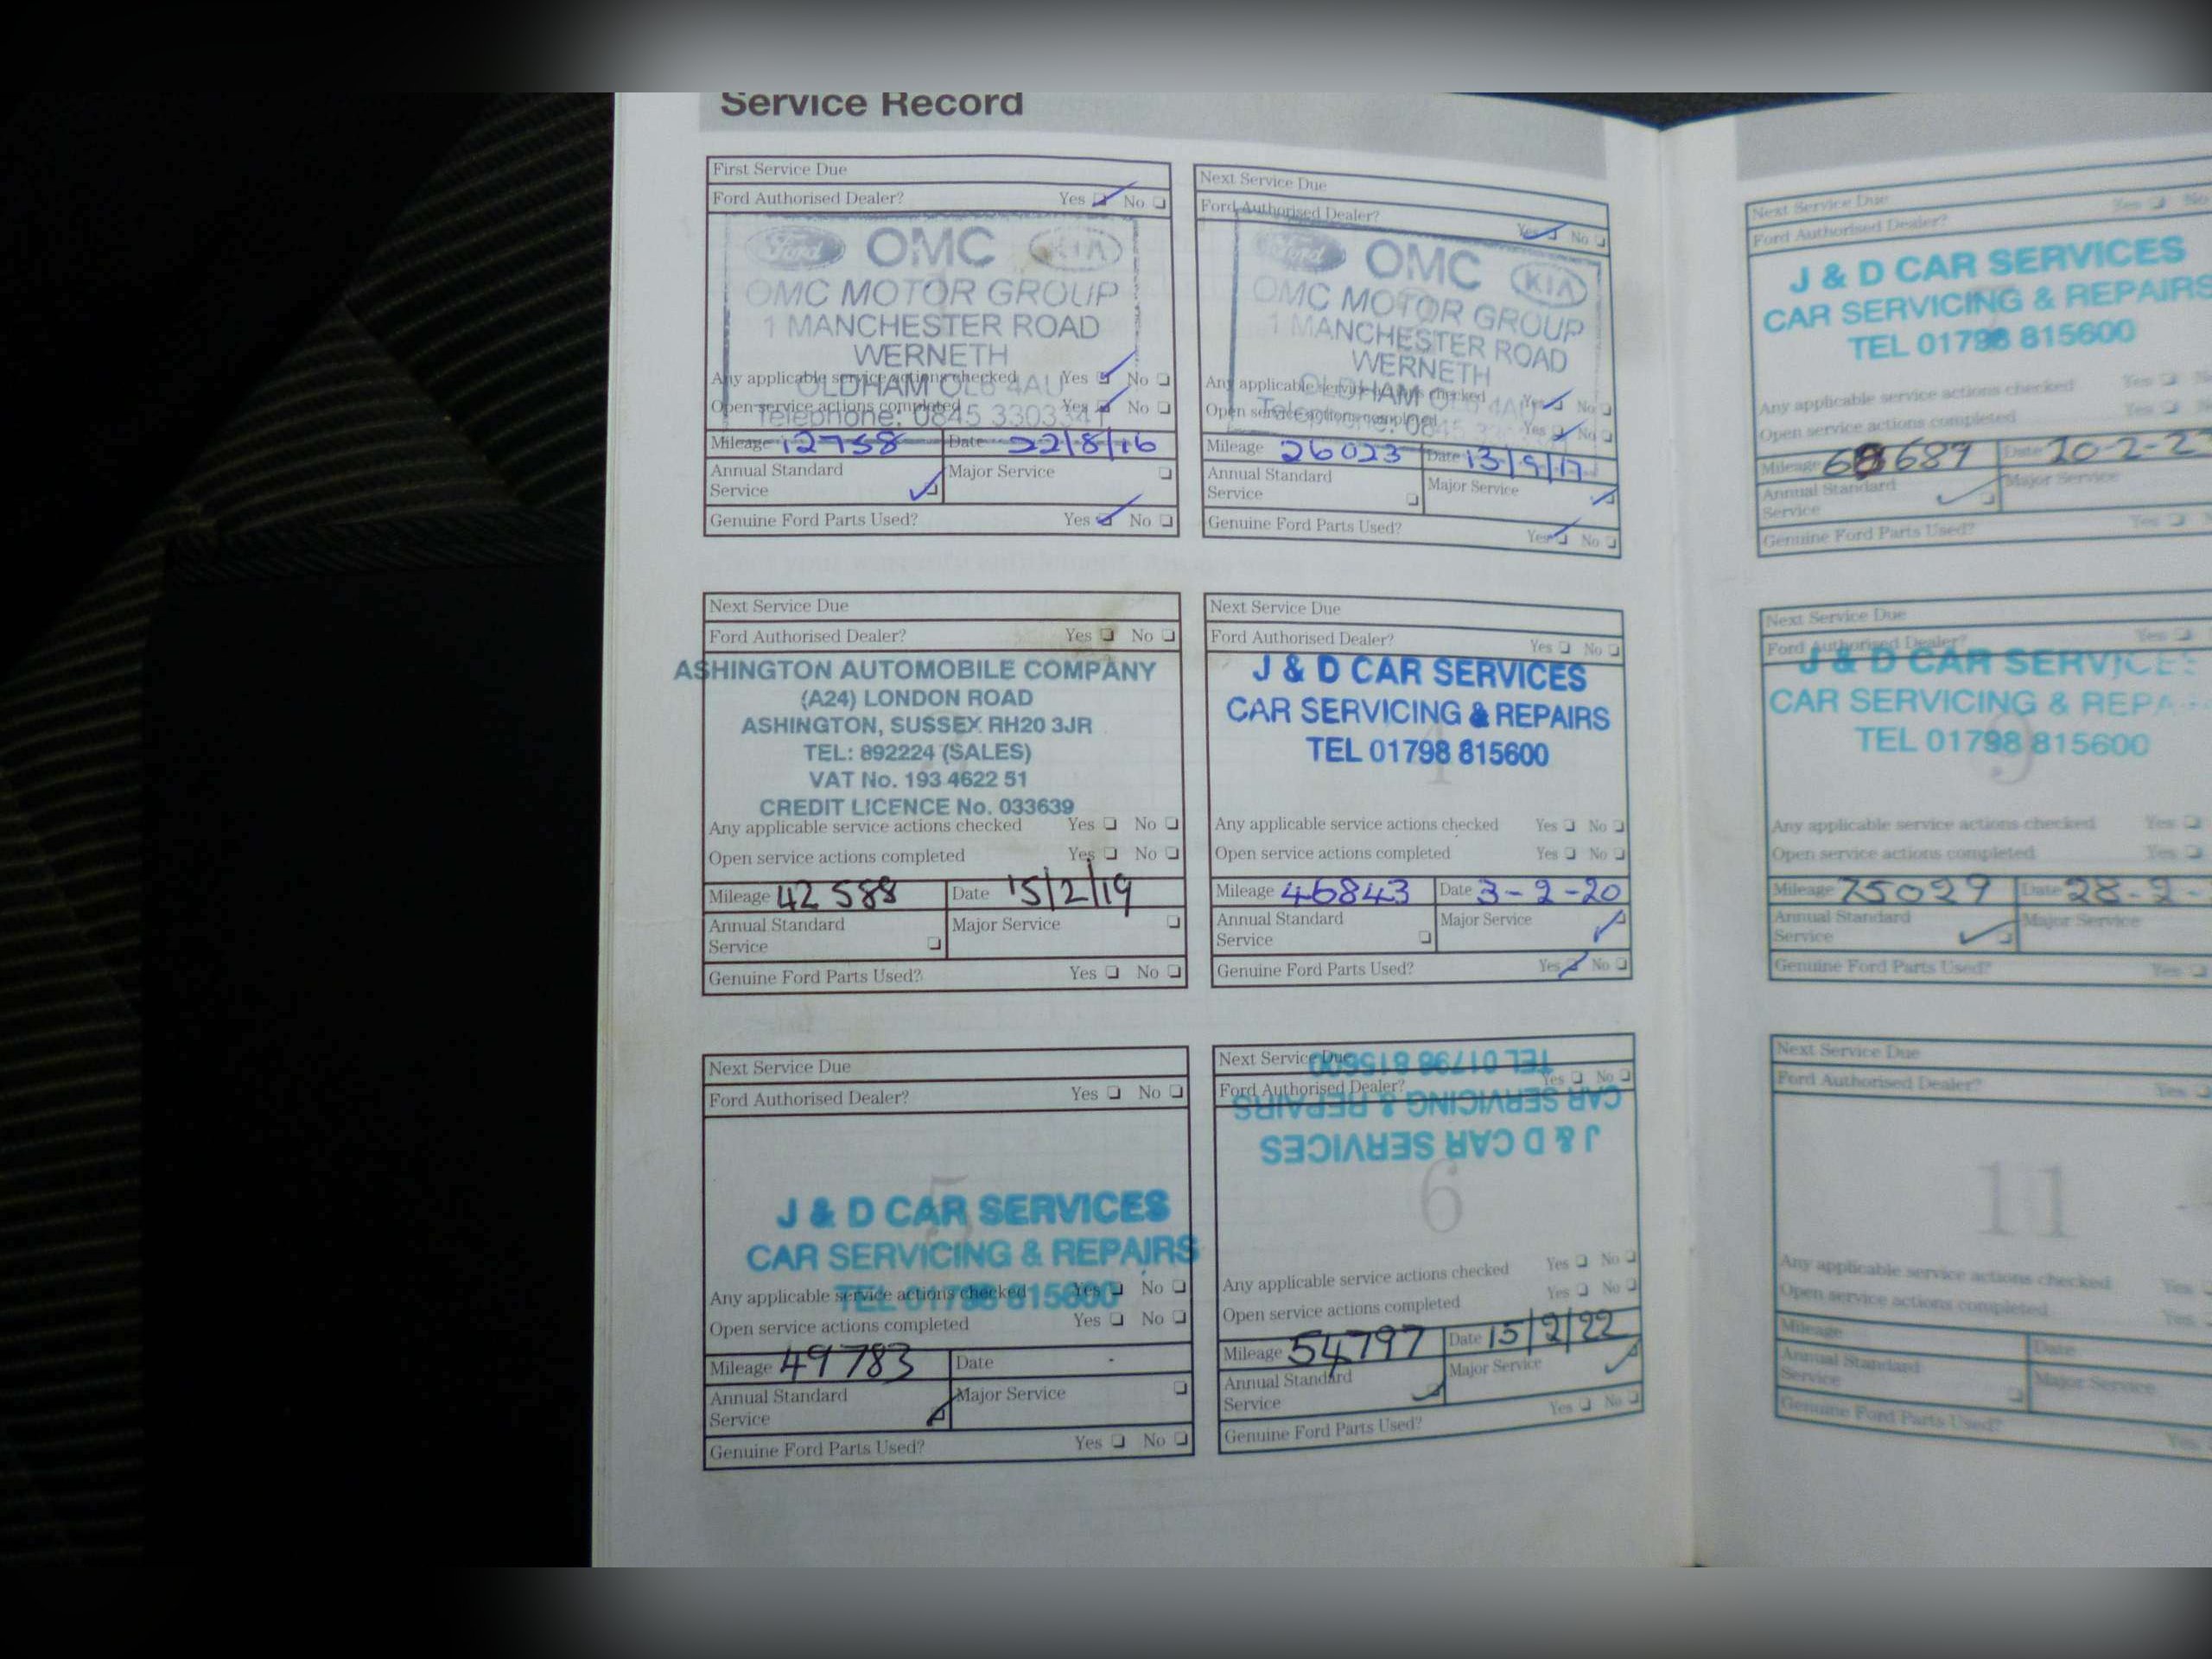 Service Record
First Service Due
Ford Authorised Dealer? Yes No
Ford OMC KIA
OMC MOTOR GROUP
1 MANCHESTER ROAD
WERNETH
OLDHAM OL9 4AU
Any applicable service actions checked Yes No
Telephone: 0845 330334
Open service actions completed Yes No
Mileage 12758 Date 22/8/16
Annual Standard Service Major Service
Genuine Ford Parts Used? Yes No
Next Service Due
Ford Authorised Dealer? Yes No
Ford OMC KIA
OMC MOTOR GROUP
1 MANCHESTER ROAD
WERNETH
OLDHAM
Any applicable service actions checked Yes No
Open service actions completed Yes No
Mileage 26023 Date 13/9/17
Annual Standard Service Major Service
Genuine Ford Parts Used? Yes No
Next Service Due
Ford Authorised Dealer? Yes No
ASHINGTON AUTOMOBILE COMPANY
(A24) LONDON ROAD
ASHINGTON, SUSSEX RH20 3JR
TEL: 892224 (SALES)
VAT No. 193 4622 51
CREDIT LICENCE No. 033639
Any applicable service actions checked Yes No
Open service actions completed Yes No
Mileage 42588 Date 15/2/19
Annual Standard Service Major Service
Genuine Ford Parts Used? Yes No
Next Service Due
Ford Authorised Dealer? Yes No
J & D CAR SERVICES
CAR SERVICING & REPAIRS
TEL 01798 815600
4
Any applicable service actions checked Yes No
Open service actions completed Yes No
Mileage 46843 Date 3-2-20
Annual Standard Service Major Service
Genuine Ford Parts Used? Yes No
Next Service Due
Ford Authorised Dealer? Yes No
5
J & D CAR SERVICES
CAR SERVICING & REPAIRS
TEL 01798 815600
Any applicable service actions checked Yes No
Open service actions completed Yes No
Mileage 49783 Date
Annual Standard Service Major Service
Genuine Ford Parts Used? Yes No
Next Service Due
Ford Authorised Dealer? Yes No
J & D CAR SERVICES
CAR SERVICING & REPAIRS
TEL 01798 815600
6
Any applicable service actions checked Yes No
Open service actions completed Yes No
Mileage 54797 Date 15/2/22
Annual Standard Service Major Service
Genuine Ford Parts Used? Yes No
Next Service Due Yes No
Ford Authorised Dealer?
J & D CAR SERVICES
CAR SERVICING & REPAIRS
TEL 01798 815600
Any applicable service actions checked Yes
Open service actions completed Yes
Mileage 68689 Date 20-2-2
Annual Standard Service Major Service
Genuine Ford Parts Used? Yes
Next Service Due
Ford Authorised Dealer? Yes
J & D CAR SERVICES
CAR SERVICING & REPA
TEL 01798 815600
9
Any applicable service actions checked Yes
Open service actions completed Yes
Mileage 75029 Date 28-2-
Annual Standard Service Major Service
Genuine Ford Parts Used? Yes
Next Service Due
Ford Authorised Dealer? Yes
11
Any applicable service actions checked Yes
Open service actions completed Yes
Mileage Date
Annual Standard Service Major Service
Genuine Ford Parts Used? Yes